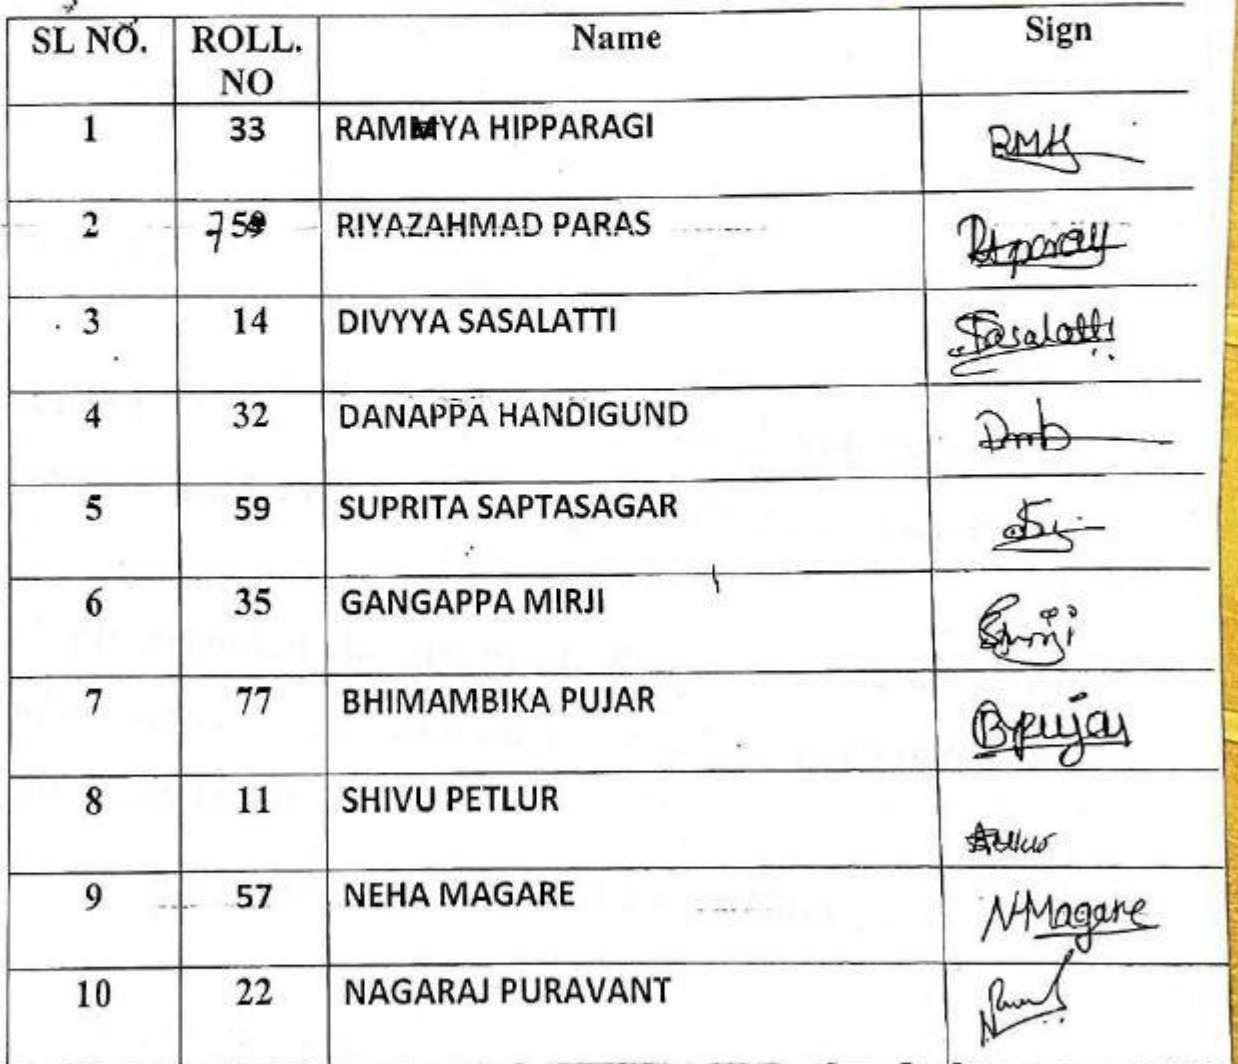 SL NO. ROLL. NO Name Sign
1 33 RAMMYA HIPPARAGI RMH
2 RIYAZAHMAD PARAS
3 14 DIVYYA SASALATTI Sasalatti
4 32 DANAPPA HANDIGUND
5 59 SUPRITA SAPTASAGAR
6 35 GANGAPPA MIRJI
7 77 BHIMAMBIKA PUJAR Bpujar
8 11 SHIVU PETLUR
9 57 NEHA MAGARE NMagare
10 22 NAGARAJ PURAVANT